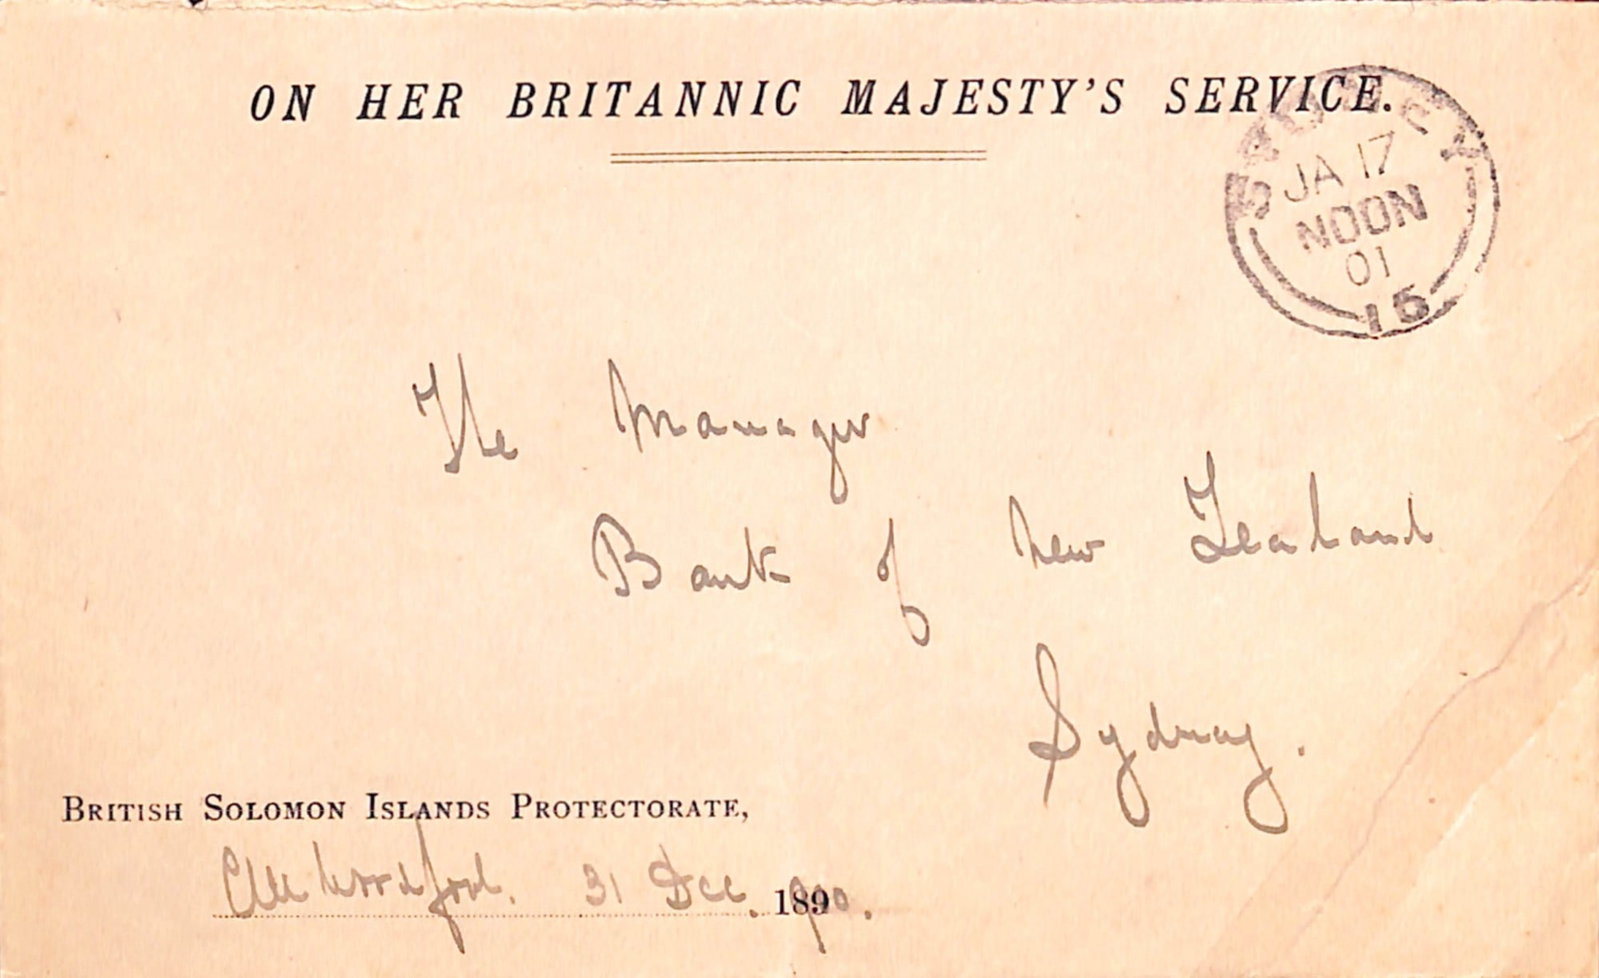 ON HER BRITANNIC MAJESTY'S SERVICE.
SYDNEY
JA 17
NOON
01
15
The Manager
Bank of New Zealand
Sydney.
BRITISH SOLOMON ISLANDS PROTECTORATE,
CMWoodford. 31 Dec. 1890.